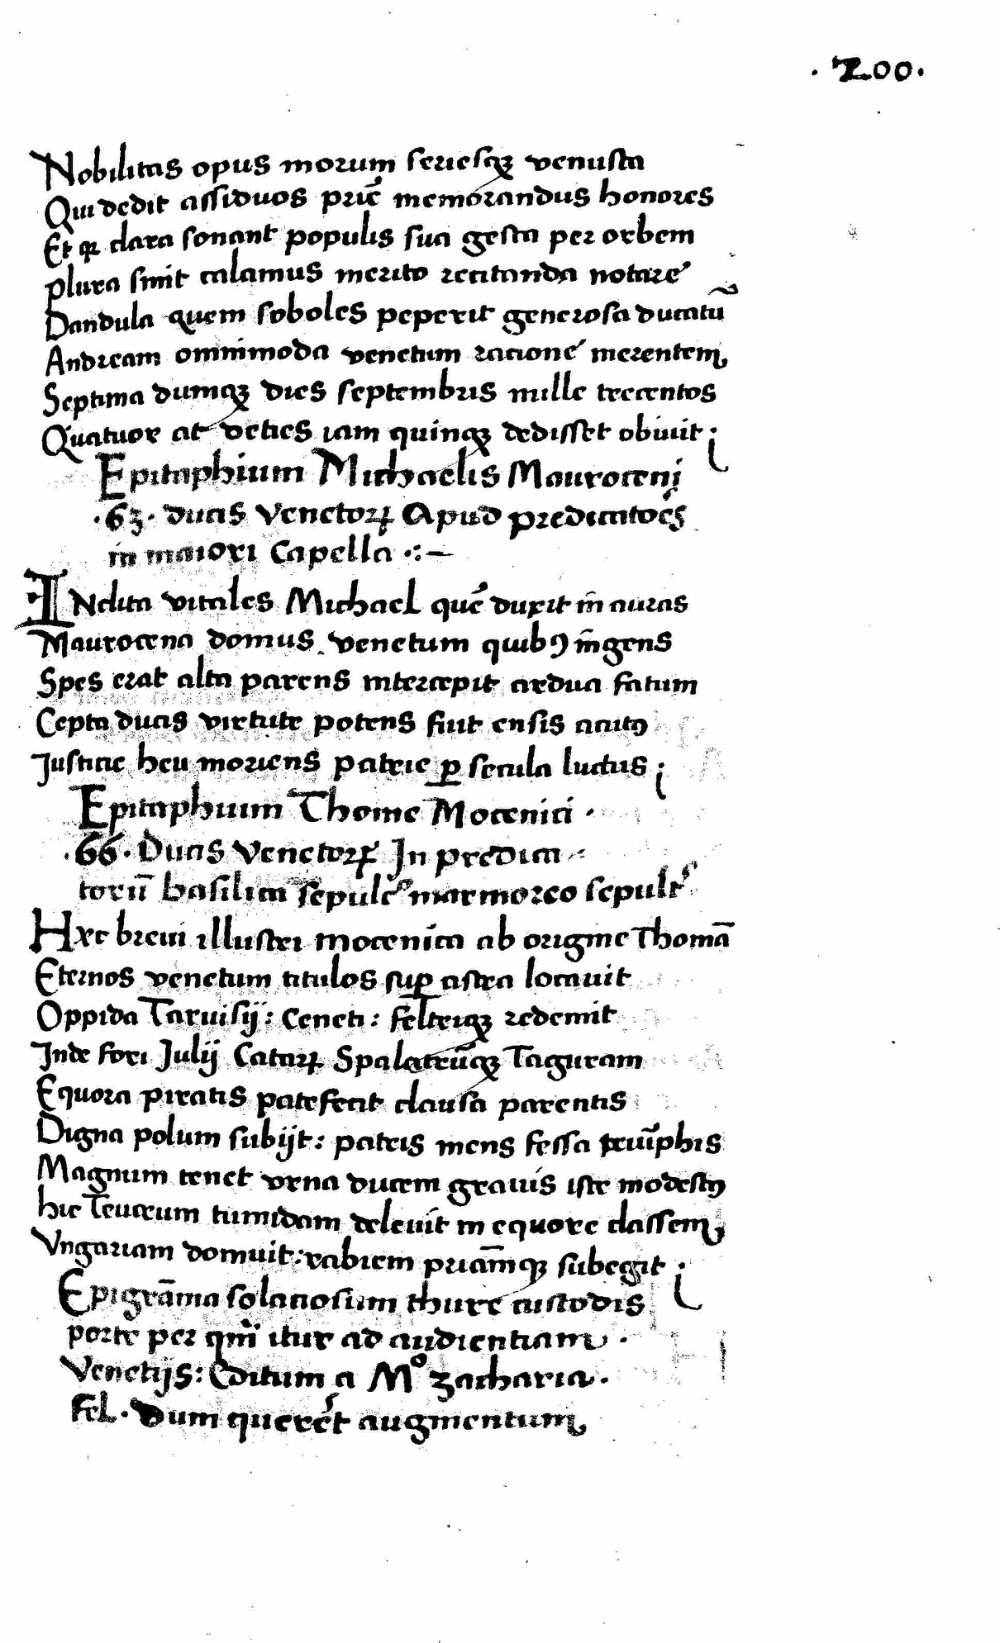 . 200 .
Nobilitas opus morum seriesqꝫ venusta
Qui dedit assiduos prie᷒ memorandus honores
Et qꝛ clara sonant populis sua gesta per orbem
plura sinit calamus merito recitanda notare
Dandula quem soboles peperit generosa ducatū
Andream omnimoda venetum racione merentem
Septima dumqꝫ dies septembris mille trecentos
Quatuor at decies iam quinqꝫ dedisset obiuit ;
Epitaphium Michaelis Mauroceni
.63. ducis Venetoꝝ Apud predicatoēs
in maiori Capella .:—
INclita vitales Michael quē duxit in auras
Maurocena domus venetum quibꝰ īngens
Spes erat alta parens intercepit ardua fatum
Cepta ducis virtute potens fiut ensis acutꝰ
Iusticie heu moriens patrie ꝑ secula luctus ;
Epitaphium Thome Mocenici .
.66. Ducis Venetoꝝ In predica
torū basilica sepulcº marmoreo sepultº
Hec breui illustri mocenica ab origine Thomā
Eternos venetum titulos suꝑ astra locauit
Oppida Taruisij : Ceneti : feltriqꝫ redemit
Inde fori Julij Cataꝝ Spalatrūqꝫ Taguram
Equora piratis patefecit clausa parentis
Digna polum subijt : patris mens fessa triūphis
Magnum tenet vrna ducem grauis iste modestꝰ
hic Teucrum tumidam deleuit in equore classem
Vngariam domuit : rabiem priāmqꝫ subegit ;
Epigrāma solaciosum thure custodis
porte per qm̄ itur ad audientiam .
Venetijs : Editum a Mº zacharia .
fel . Dum querēt augmentum